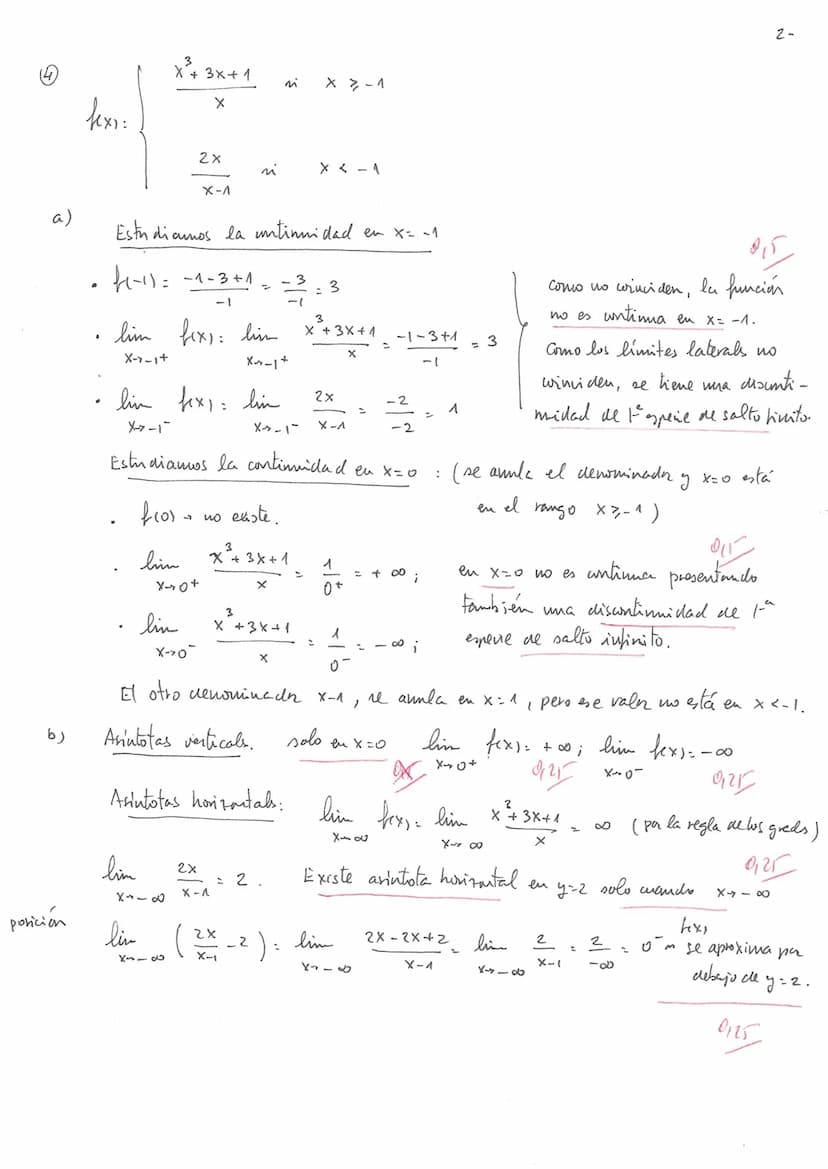 2-
④
f(x) = { (x³ + 3x + 1)/x si x ≥ -1
2x/(x-1) si x < -1
a)
Estudiamos la continuidad en x = -1
0,5
• f(-1) = (-1-3+1)/-1 = -3/-1 = 3
• lim x→-1+ f(x) = lim x→-1+ (x³+3x+1)/x = (-1-3+1)/-1 = 3
• lim x→-1- f(x) = lim x→-1- 2x/(x-1) = -2/-2 = 1
Como no coinciden, la función
no es continua en x = -1.
Como los límites laterales no
coinciden, se tiene una disconti-
nuidad de 1ª especie de salto finito.
Estudiamos la continuidad en x=0 : (se anula el denominador y x=0 está
en el rango x ≥ -1)
• f(0) → no existe.
• lim x→0+ (x³+3x+1)/x = 1/0+ = +∞ ;
• lim x→0- (x³+3x+1)/x = 1/0- = -∞ ;
0,5
en x=0 no es continua presentando
también una discontinuidad de 1-ª
especie de salto infinito.
El otro denominador x-1, se anula en x=1, pero ese valor no está en x < -1.
b) Asíntotas verticales. solo en x=0 lim x→0+ f(x) = +∞ ; lim x→0- f(x) = -∞
0,25 0,25
Asíntotas horizontales: lim x→∞ f(x) = lim x→∞ (x³+3x+1)/x = ∞ (por la regla de los grados)
0,25
lim x→-∞ 2x/(x-1) = 2. Existe asíntota horizontal en y=2 solo cuando x→-∞
posición lim x→-∞ (2x/(x-1) - 2) = lim x→-∞ (2x-2x+2)/(x-1) = lim x→-∞ 2/(x-1) = 2/-∞ = 0- → f(x) se aproxima por
debajo de y=2.
0,25